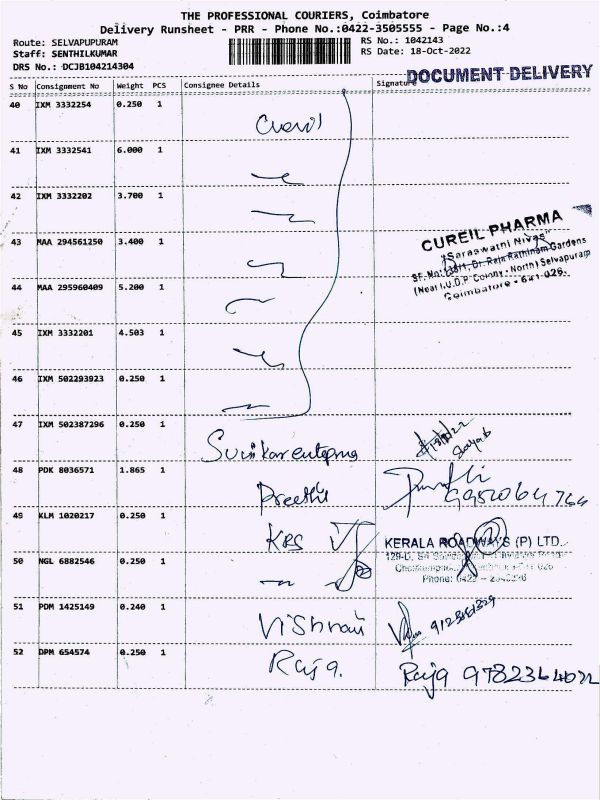 THE PROFESSIONAL COURIERS, Coimbatore
Delivery Runsheet - PRR - Phone No.:0422-3505555 - Page No.:4
Route: SELVAPUPURAM
RS No.: 1042143
Staff: SENTHILKUMAR
RS Date: 18-Oct-2022
DRS No.: DCJB104214304
DOCUMENT DELIVERY
S No Consignment No Weight PCS Consignee Details Signature
40 IXM 3332254 0.250 1
41 IXM 3332541 6.000 1
42 IXM 3332202 3.700 1
CUREIL PHARMA
"Saraswathi Nivas"
43 MAA 294561250 3.400 1
SF. No: Dr. Raja Rathinam Gardens
(Near I.U.D.P Colony - North) Selvapuram
44 MAA 295960409 5.200 1
Coimbatore - 641 026.
45 IXM 3332201 4.503 1
46 IXM 502293923 0.250 1
47 IXM 502387296 0.250 1
48 PDK 8036571 1.865 1
Preethi
49 KLM 1020217 0.250 1
KRS
KERALA ROADWAYS (P) LTD.
50 NGL 6882546 0.250 1
Phone: 0422 -
51 PDM 1425149 0.240 1
52 DPM 654574 0.250 1
Raja.
Raja 9782364022